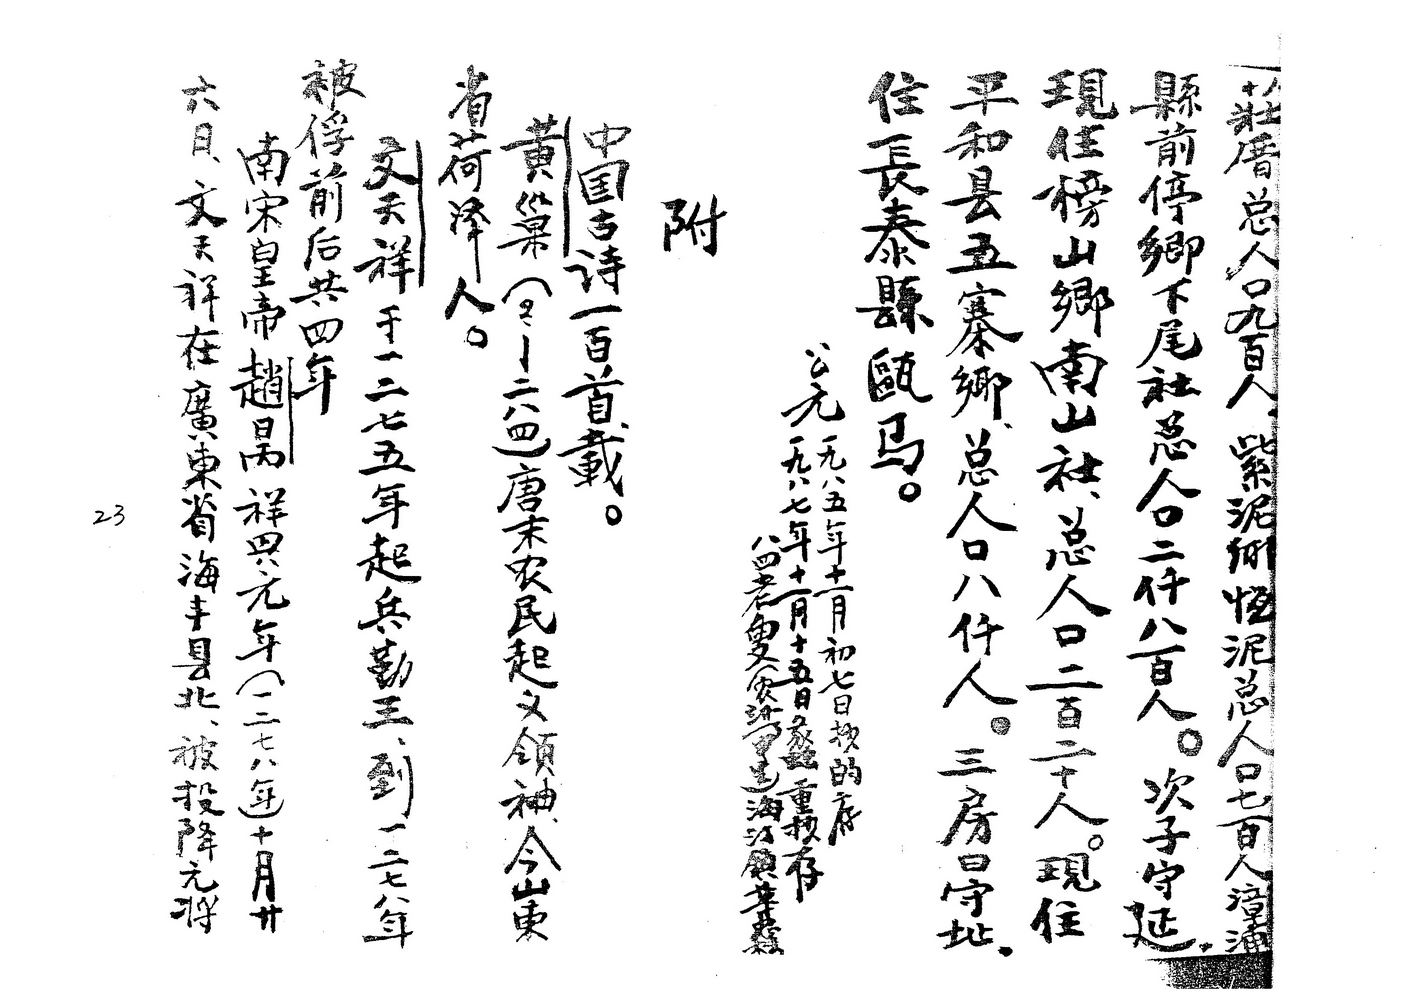 莊厝总人口九百人、紫泥鄉恒泥总人口七百人漳浦
縣前停鄉下尾社总人口二仟八百人。次子守延、
現住榜山鄉南山社、总人口二百二十人。現住
平和县五寨鄉、总人口八仟人。三房曰守址、
住長泰縣甌馬。
公元一九八五年十一月初七日抄的存
一九八七年十一月十五日 重抄存
八四老叟 海澄鎮
附
中国古诗一百首載。
黃巢(？—二八四)唐末农民起义領袖、今山東
省荷泽人。
文天祥于一二七五年起兵勤王、到一二七八年
被俘前后共四年
南宋皇帝趙昺祥興元年(一二七八年)十月廿
六日、文天祥在廣東省海丰县北、被投降元將
23